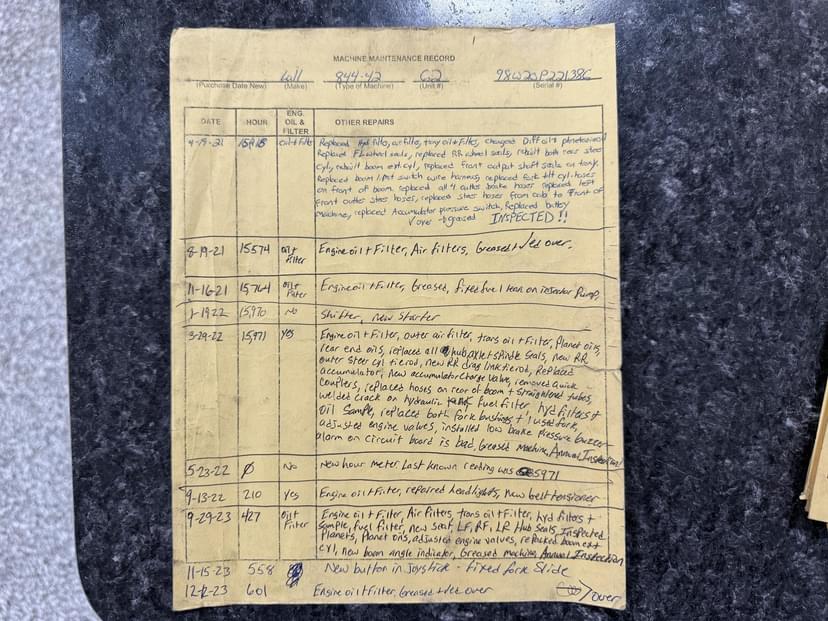 MACHINE MAINTENANCE RECORD
844-42 62
(Purchase Date New) (Make) (Type of Machine) (Unit #) (Serial #)
DATE HOUR ENG. OIL & FILTER OTHER REPAIRS
4-19-21 oil + filter Replaced filter, air filter, trany oil + filter, changed Diff oil +
Replaced wheel seals, replaced RR wheel seals, rebuilt both rear steer
cyl, rebuilt boom ext. cyl, replaced front output shaft seals on trany.
Replaced boom switch wire harness, replaced fork tilt cyl. hoses
on front of boom, replaced all 4 outter brake hoses, replaced left
front outter steer hoses, replaced steer hoses from cab to front of
Machine, replaced Accumulator pressure switch, Replaced battery
√ over + greased INSPECTED !!
8-19-21 15574 oil + Filter Engine oil + Filter, Air filters, Greased + √ed over.
11-16-21 15,764 oil + Filter Engine oil + Filter, Greased, fixed fuel leak on injector Pump.
1-19-22 15,970 No Shifter, new Starter
3-29-22 15,971 yes Engine oil + Filter, outer air filter, trans oil + Filter, Planet oils,
rear end oils, replaced all hub, axle + spindle seals, new RR
outer steer cyl tierod, new RR drag link tierod, Replaced
accumulator, new accumulator charge valve, removed quick
couplers, replaced hoses on rear of boom + straightened tubes,
welded crack on hydraulic fuel filter, hyd filters +
oil sample, replaced both fork bushings + 1 used fork,
adjusted engine valves, installed low brake pressure buzzer
alarm on circuit board is bad, Greased machine, Annual Inspection!
5-23-22 0 No New hour meter Last known reading was 5971
9-13-22 210 yes Engine oil + Filter, repaired headlights, new belt tensioner
9-29-23 427 oil + Filter Engine oil + Filter, Air Filters, trans oil + Filter, hyd filters +
sample, fuel filter, new seat, LF, RF, LR Hub seals, Inspected
Planets, Planet oils, adjusted engine valves, repacked boom ext
cyl, new boom angle indicator, Greased machine, Annual Inspection
11-15-23 558 New button in Joystick - fixed fork Slide
12-12-23 601 Engine oil + filter, Greased + √ed over over